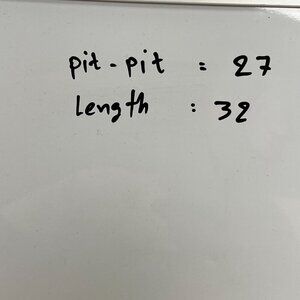 pit-pit : 27
Length : 32